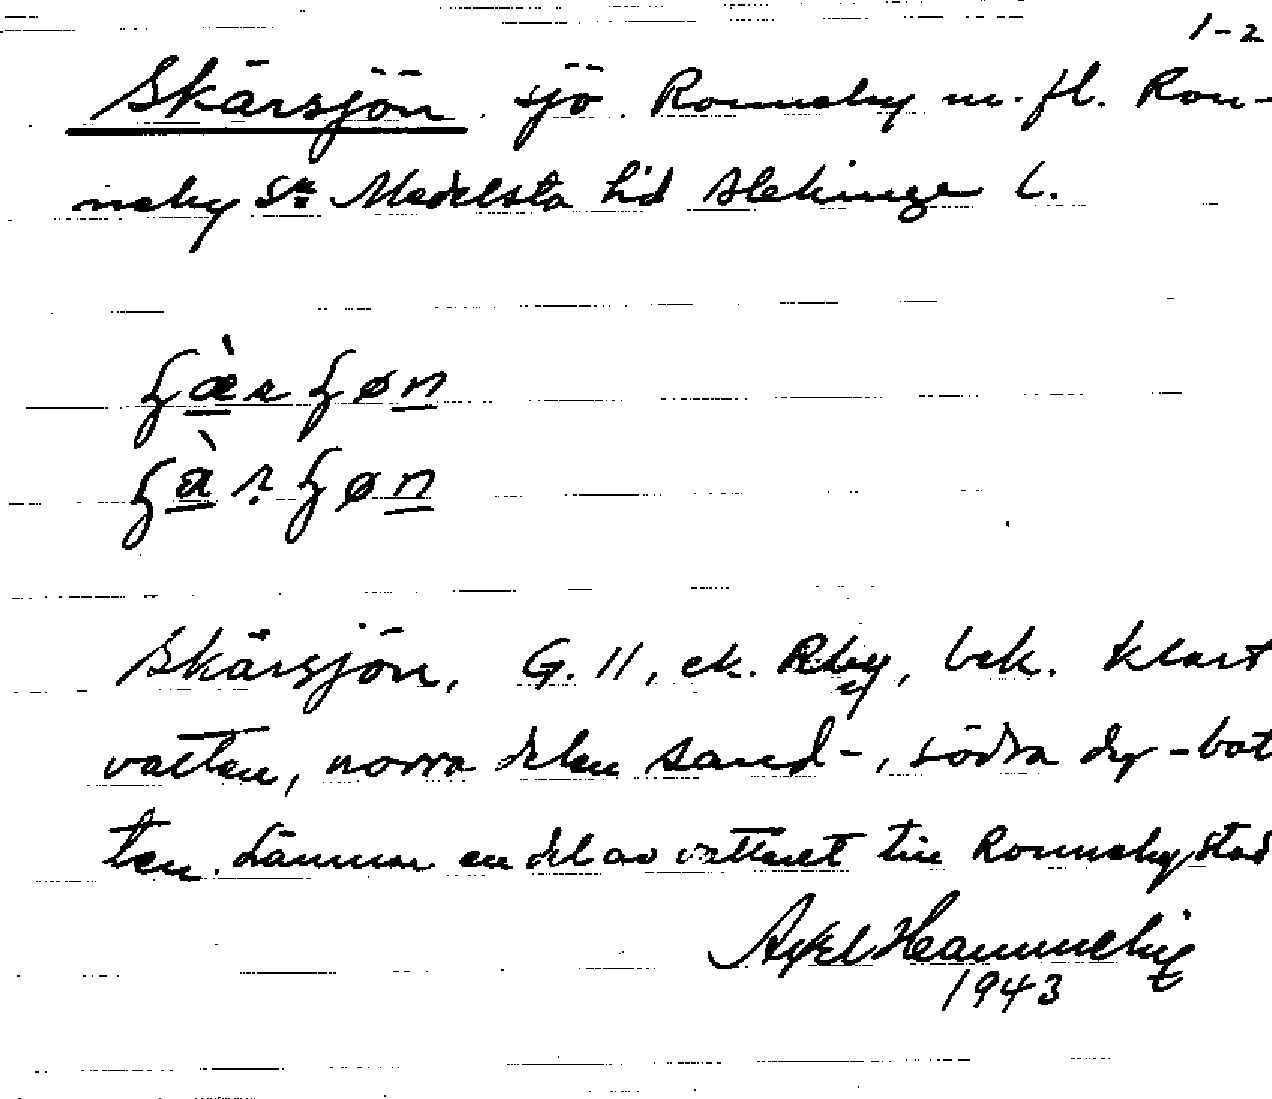 1-2
Skärsjön sjö Ronneby m. fl. Ron-
neby sn Medelsta hd Blekinge l.
Skärsjön, G. 11, ek. Rby, bek. klart
vatten, norra delen sand-, södra dy-bot
ten. Lämnar en del av vattnet till Ronneby stad
Axel
1943